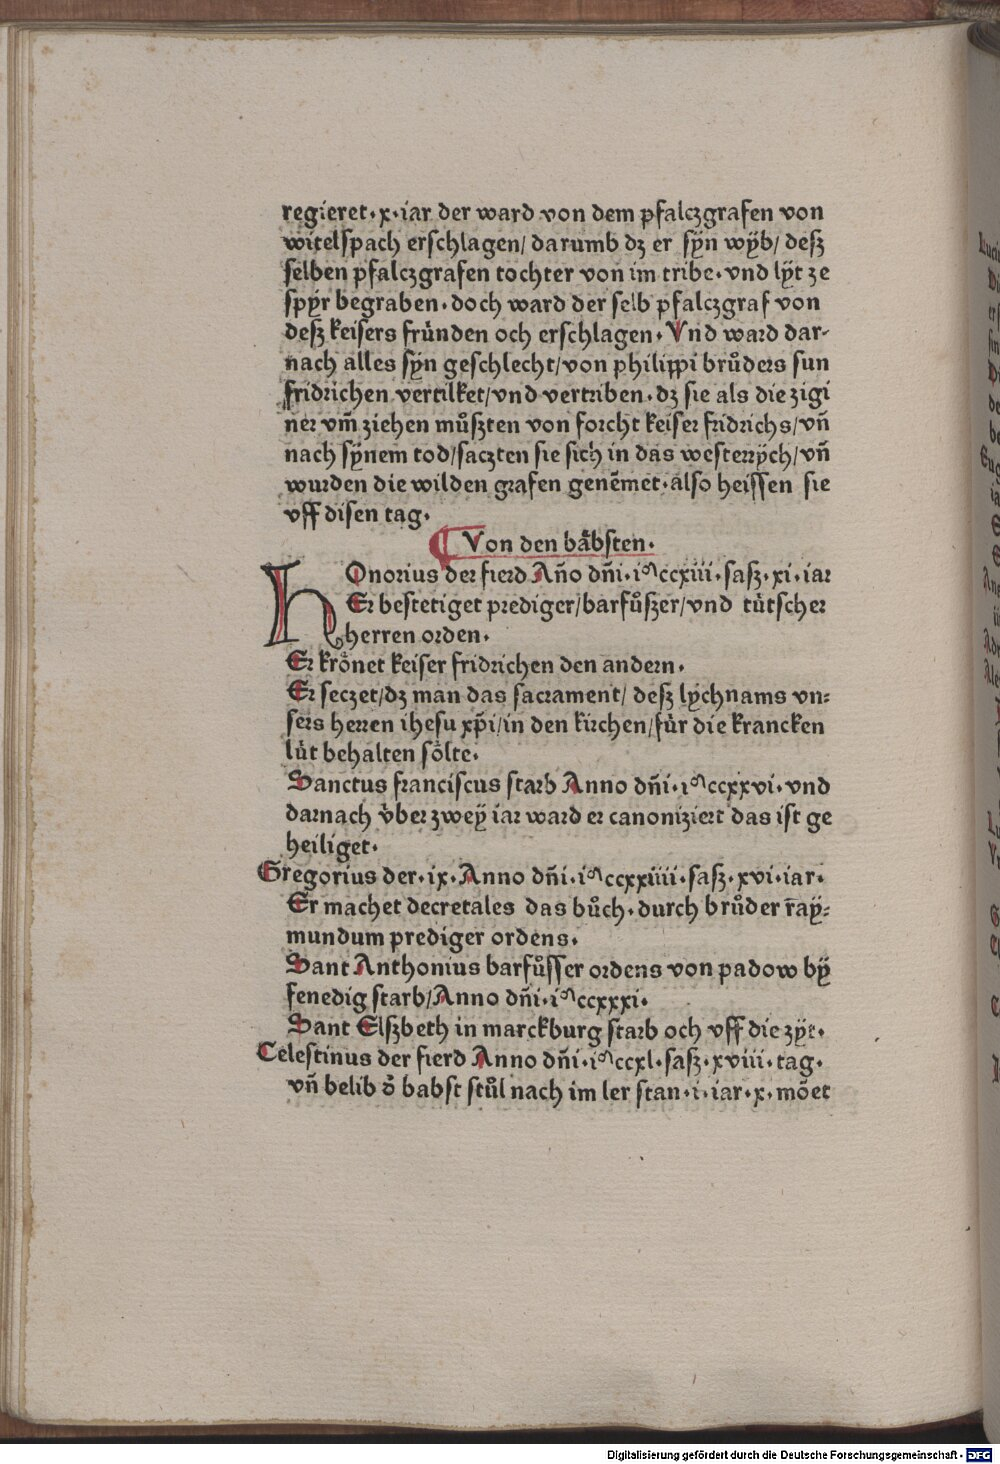 regieret·x·iar der ward von dem pfalczgrafen von
witelspach erschlagen/ darumb dz er sÿn wÿb/ deſz
selben pfalczgrafen tochter von im tribe·vnd lÿt ze
spÿr begraben·doch ward der selb pfalczgraf von
deſz keisers fruͤnden och erschlagen· Vnd ward dar-
nach alles sÿn geschlecht/von philippi bruͦders sun
fridrichen vertilket/vnd vertriben·dz sie als die zigi
ner vm̄ ziehen muͦſzten von forcht keiser fridrichs/vn̄
nach sÿnem tod/saczten sie sich in das westerrÿch/vn̄
wurden die wilden grafen genēmet·also heissen sie
vff disen tag·
¶ Von den baͤbsten·
HOnorius der fierd An̄o dn̄i·iᵐccxiii·saſz·xi·iar
Er bestetiget prediger/barfuͦſzer/vnd tuͤtscher
herren orden·
Er kroͤnet keiser fridrichen den andern·
Er seczet/dz man das sacrament/ deſz lÿchnams vn=
sers herren ihesu xp̄i/in den kirchen/fuͤr die krancken
luͤt behalten soͤlte·
Sanctus franciscus starb Anno dn̄i·iᵐccxxvi·vnd
darnach vͤber zweÿ iar ward er canoniziert das ist ge
heiliget·
Gregorius der·ix·Anno dn̄i·iᵐccxxiiii·saſz·xvi·iar·
Er machet decretales das buͦch·durch bruͦder r̄aÿ=
mundum prediger ordens·
Sant Anthonius barfuͦsser ordens von padow bÿ
fenedig starb/Anno dn̄i·iᵐccxxxi·
Sant Elſzbeth in marckburg starb och vff die zÿt·
Celestinus der fierd Anno dn̄i·iᵐccxl·saſz·xviii·tag·
vn̄ belib d̓ babst stuͦl nach im ler stan·i·iar·x·mōet
Digitalisierung gefördert durch die Deutsche Forschungsgemeinschaft - DFG